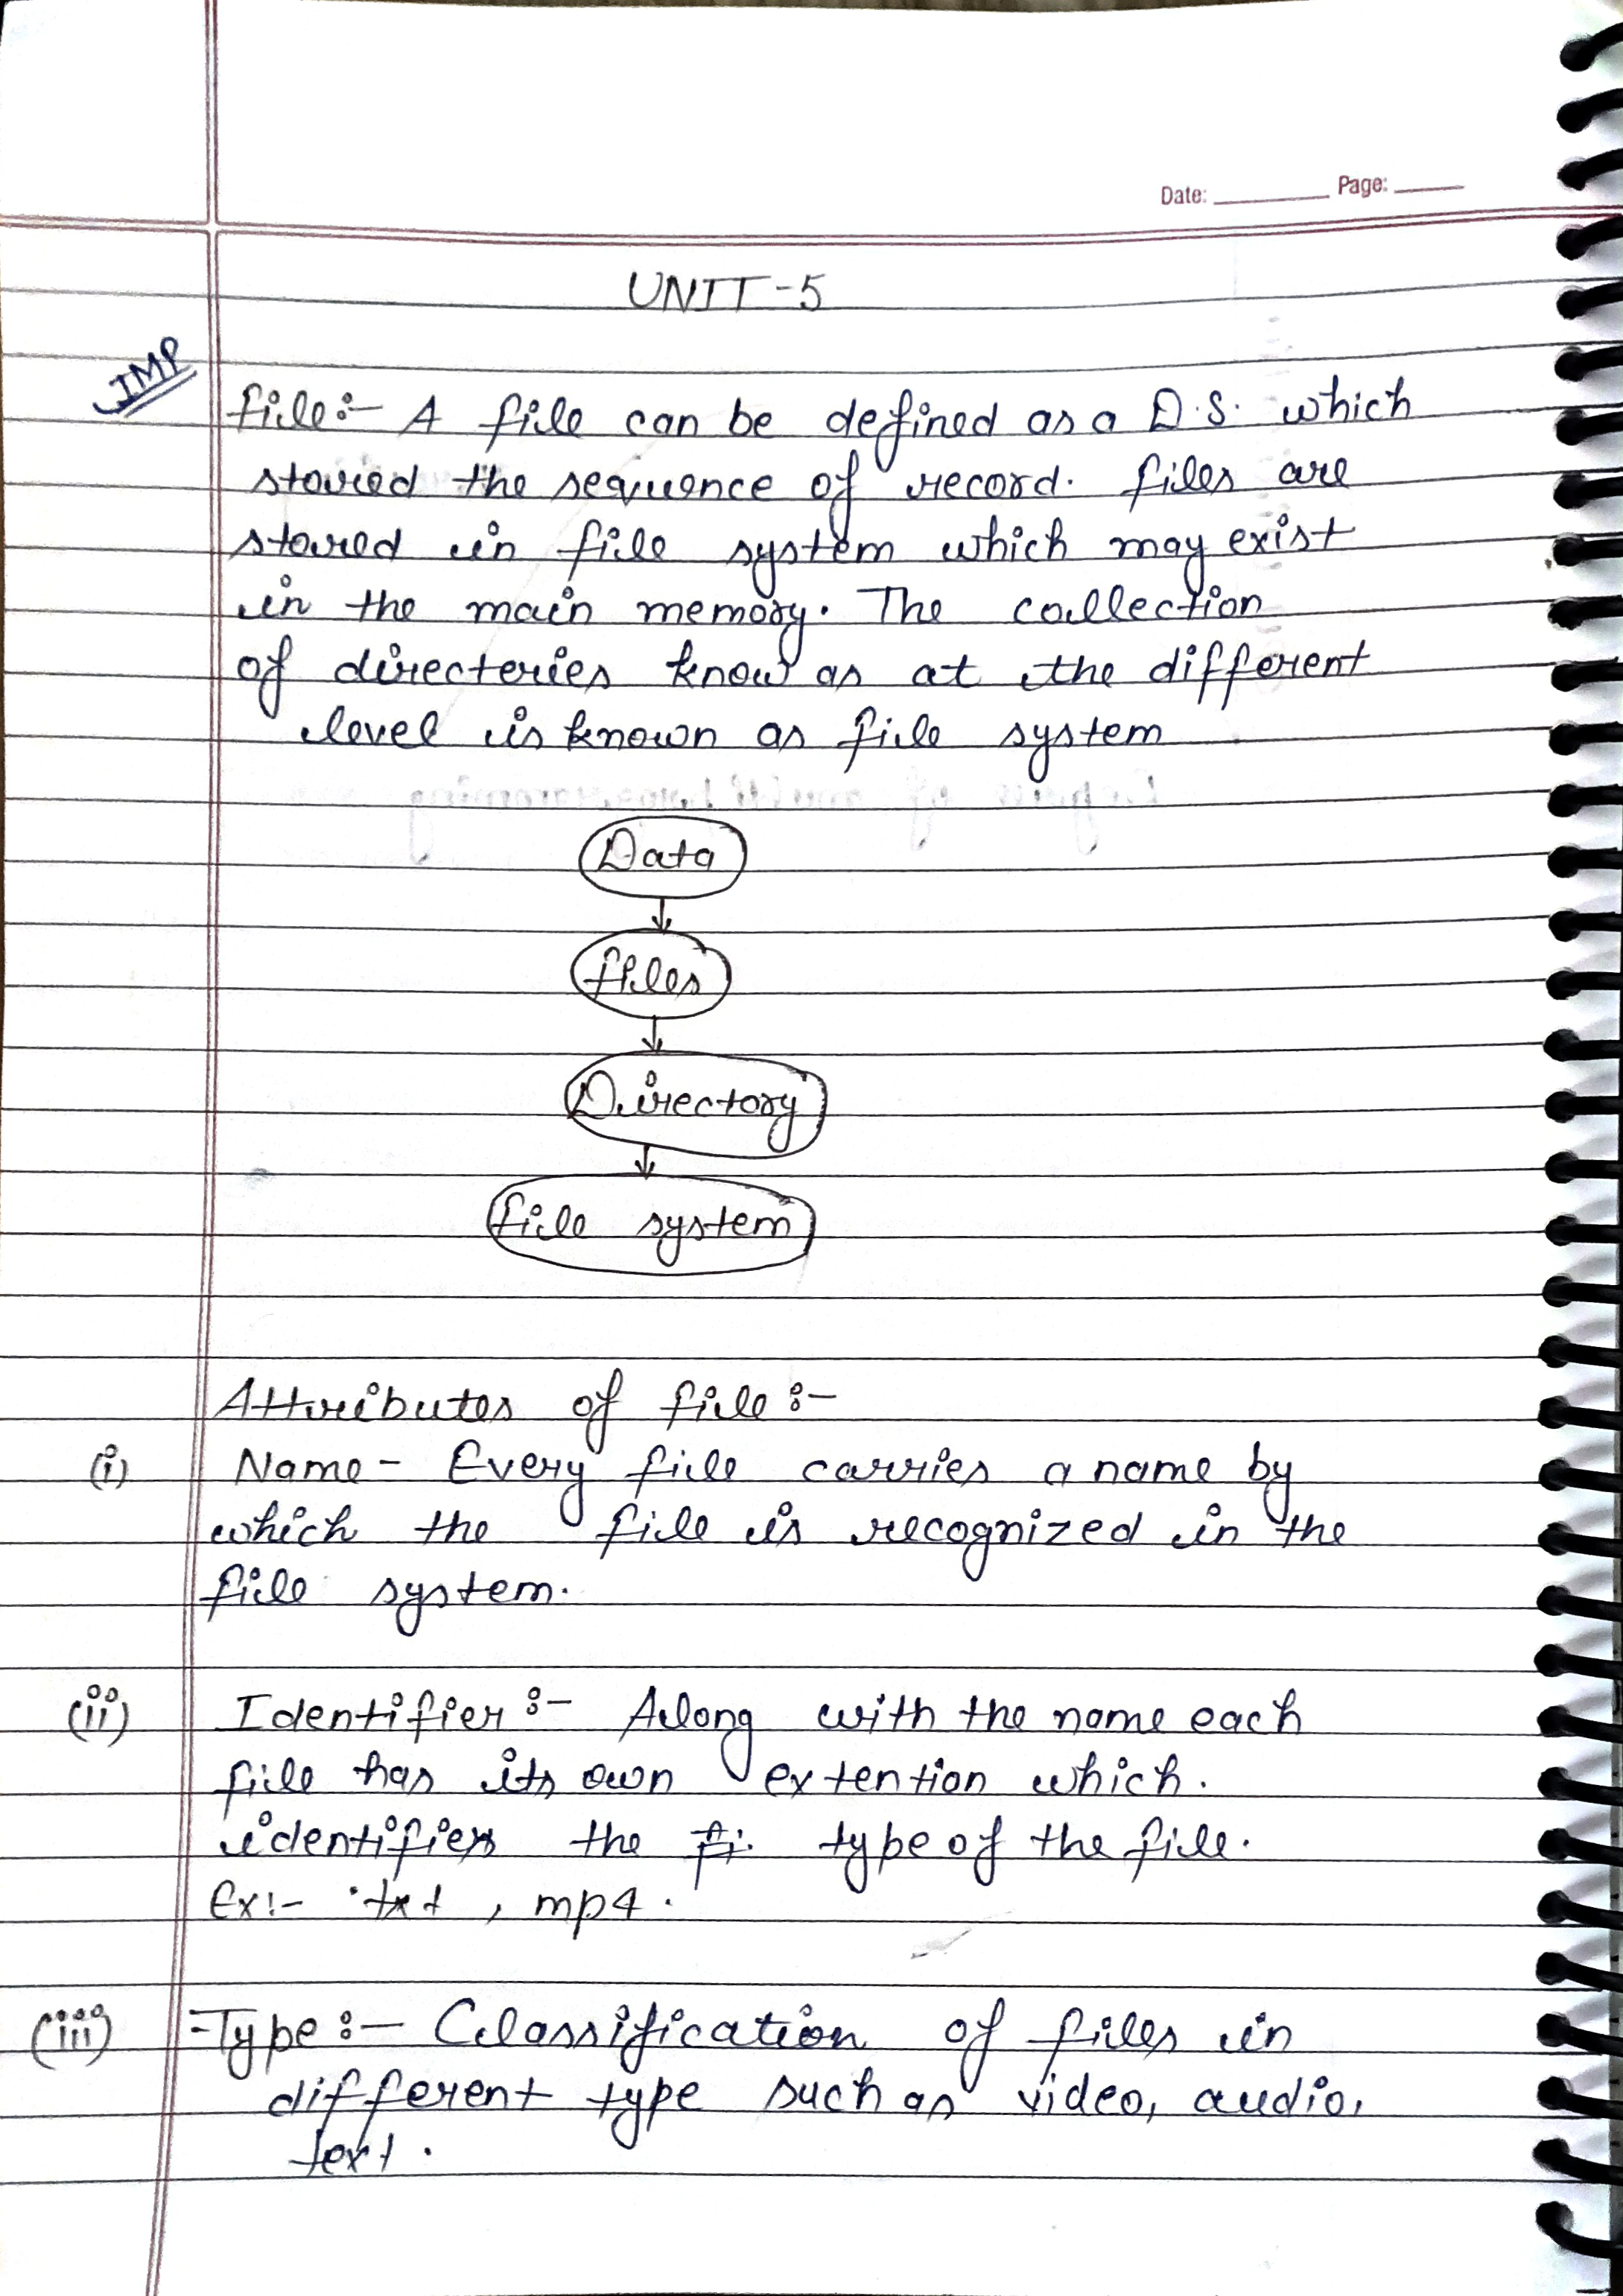 Date: Page:
UNIT-5
IMP
file:- A file can be defined as a D.S. which
stored the sequence of record. files are
stored in file system which may exist
in the main memory. The collection
of directeries know as at the different
level is known as file system
Data
files
Directory
file system
Attributes of file:-
(i) Name- Every file carries a name by
which the file is recognized in the
file system.
(ii) Identifier:- Along with the name each
file has its own extention which.
identifies the type of the file.
Ex:- .txt, mp4.
(iii) Type:- Classification of files in
different type such as video, audio,
text.